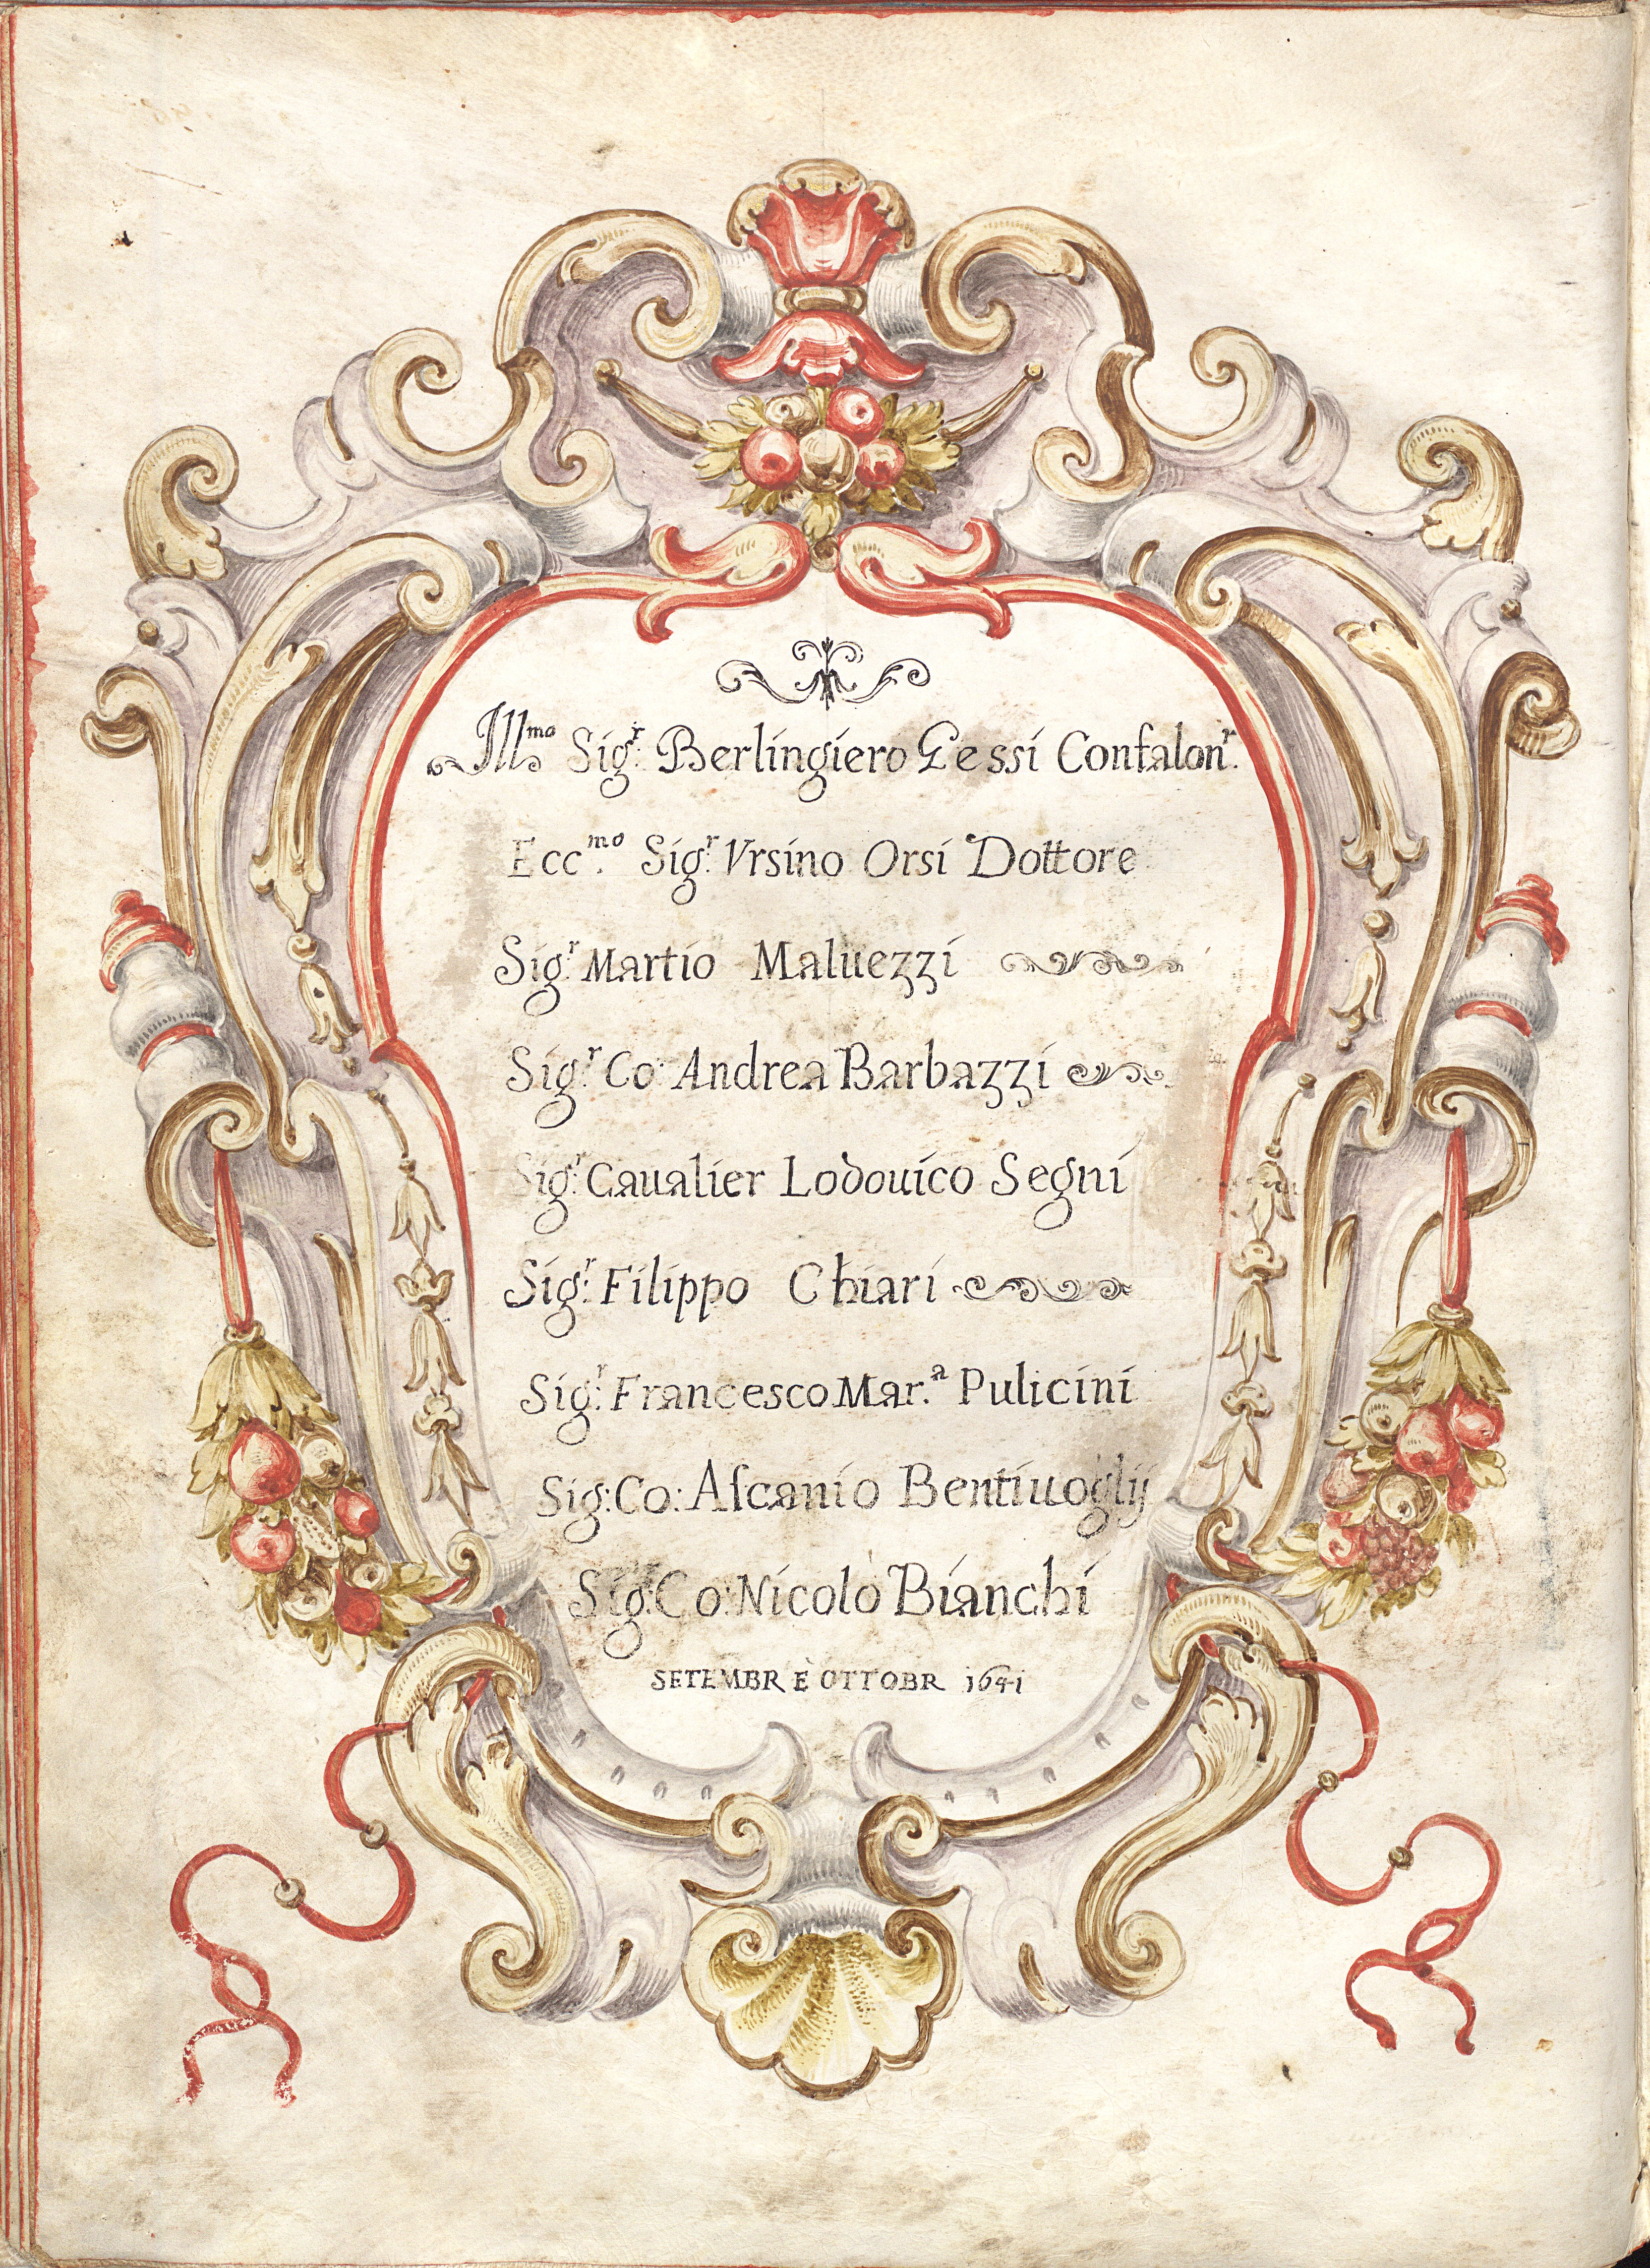 Ill.mo Sig.r Berlingiero Gessi Confalon.r
Ecc.mo Sig.r Vrsino Orsi Dottore
Sig.r Martio Maluezzi
Sig.r Co: Andrea Barbazzi
Sig.r Caualier Lodouico Segni
Sig.r Filippo Chiari
Sig.r Francesco Mar.a Pulicini
Sig: Co: Aſcanio Bentiuoglij
Sig: Co: Nicolò Bianchi
SETEMBR E OTTOBR 1641